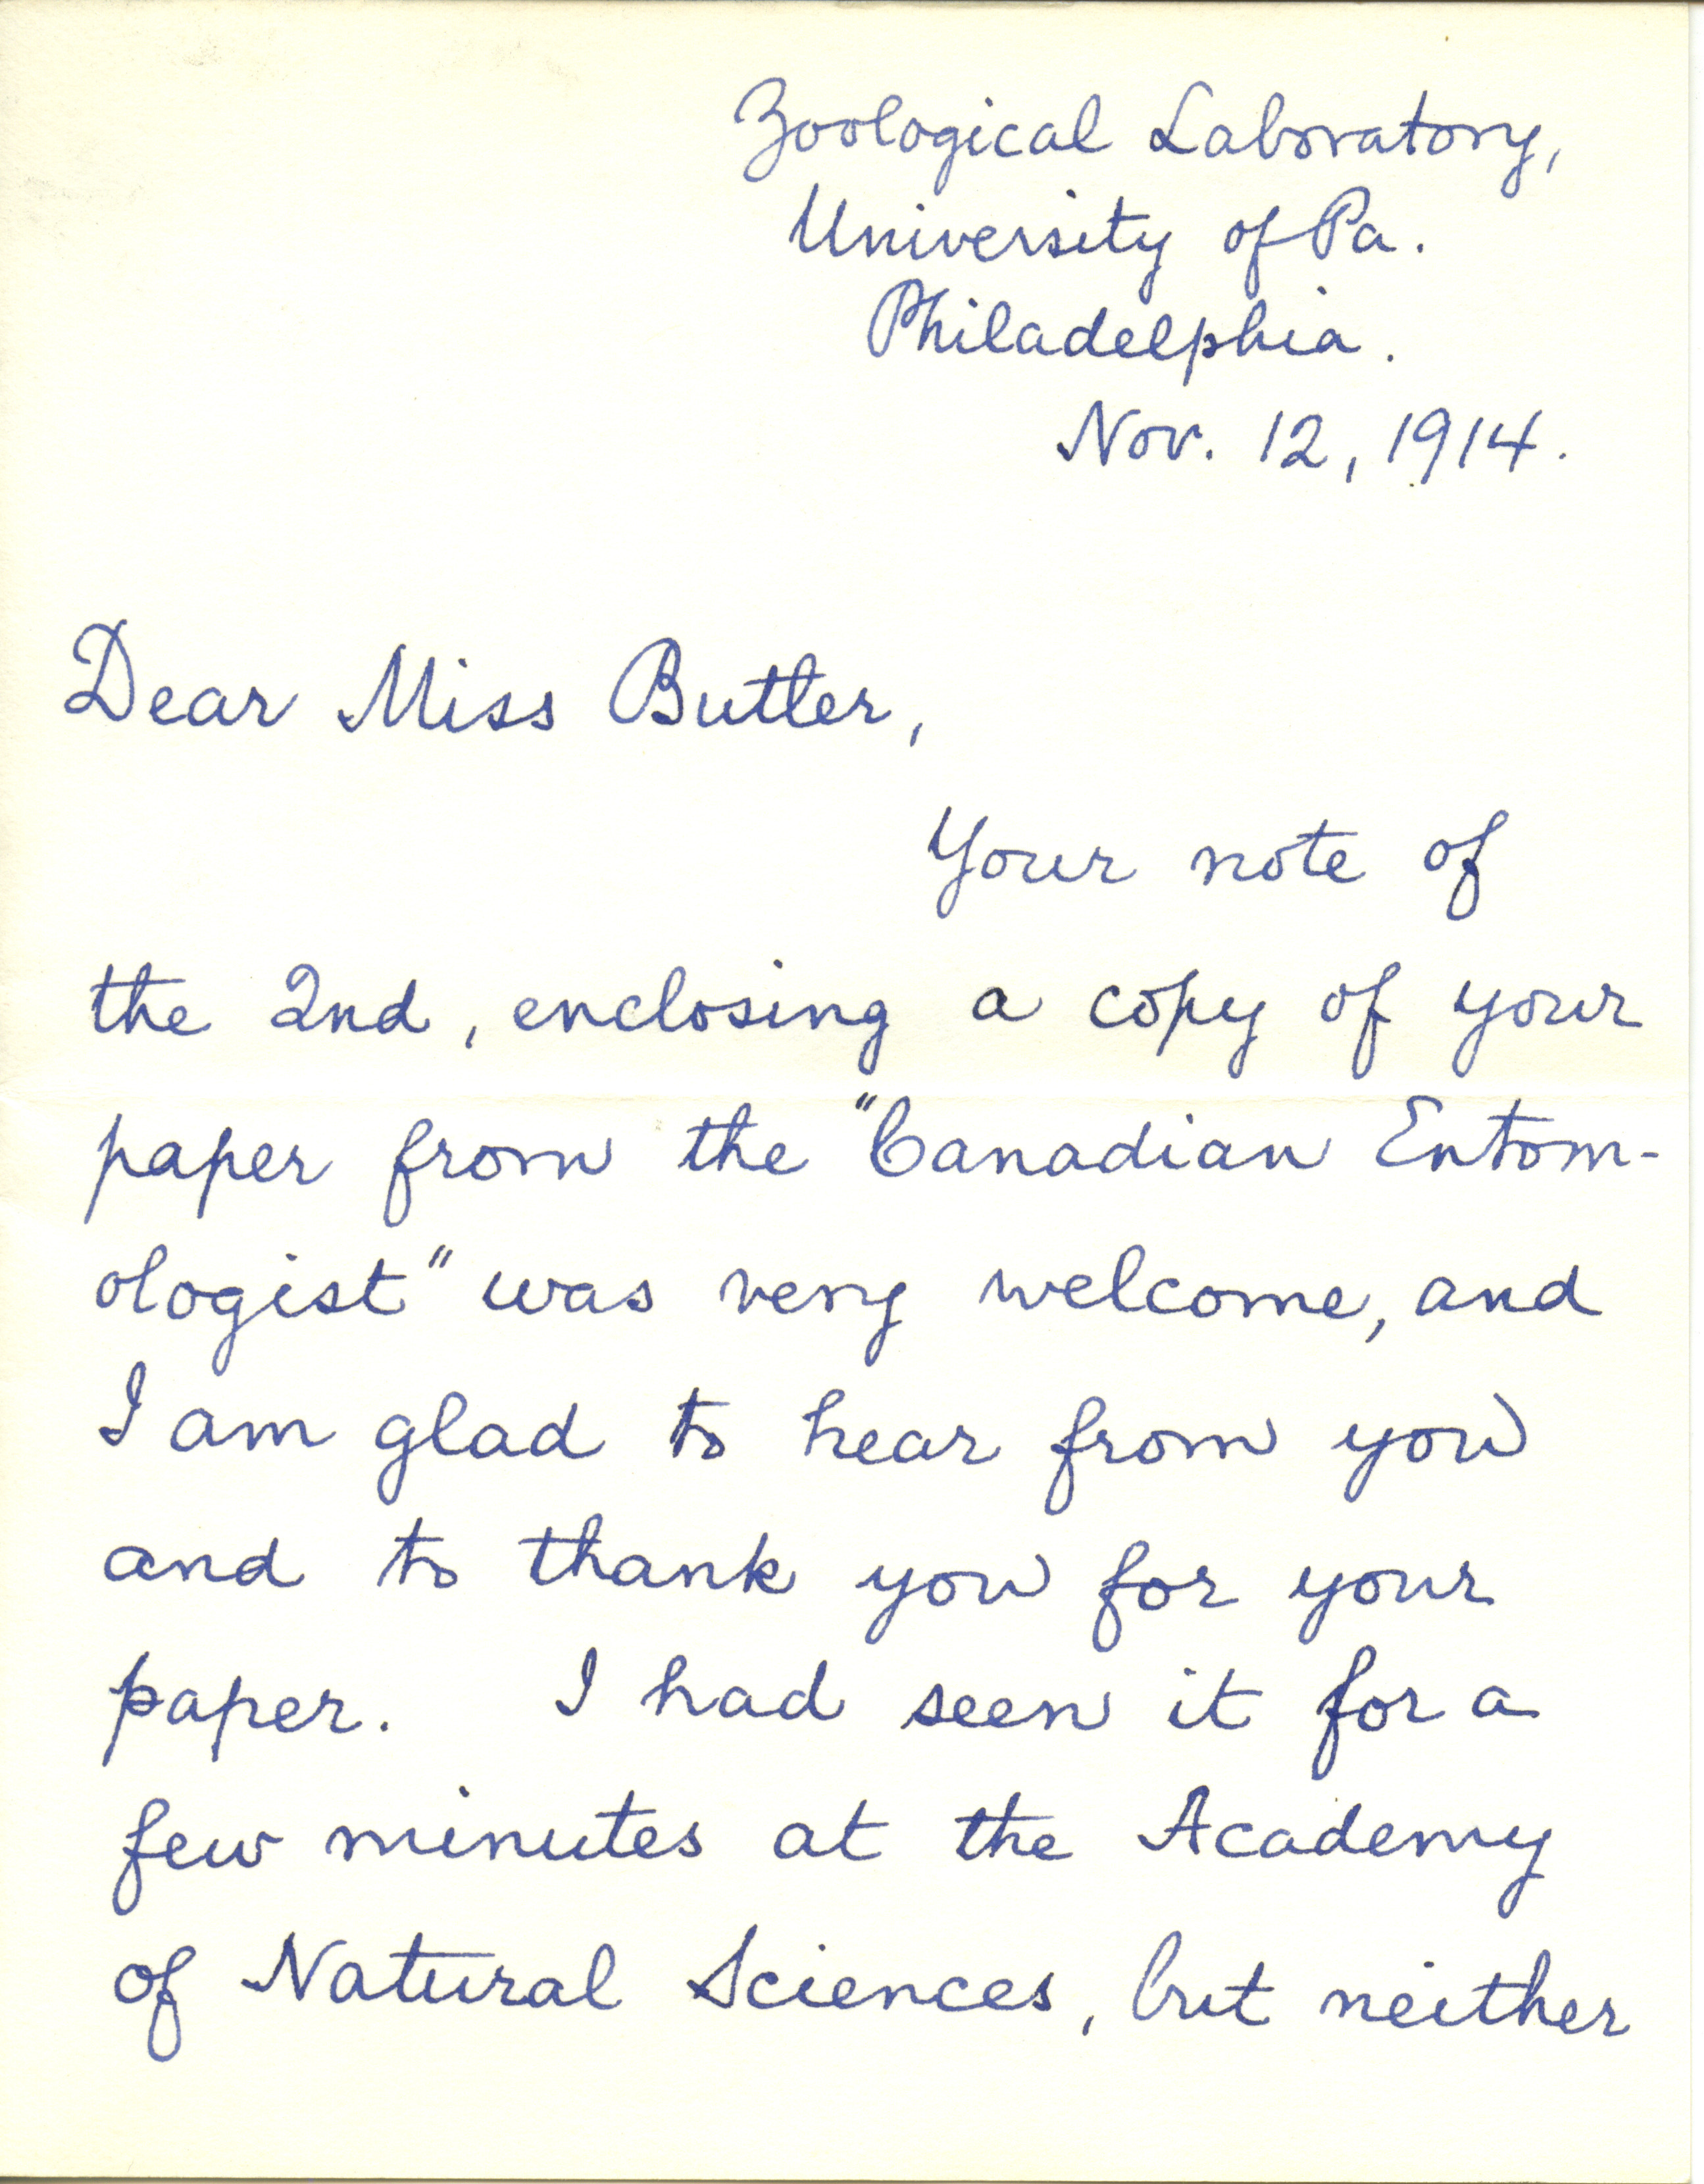 Zoological Laboratory,
University of Pa.
Philadelphia.
Nov. 12, 1914.
Dear Miss Butler,
Your note of
the 2nd, enclosing a copy of your
paper from the "Canadian Entom-
ologist" was very welcome, and
I am glad to hear from you
and to thank you for your
paper. I had seen it for a
few minutes at the Academy
of Natural Sciences, but neither